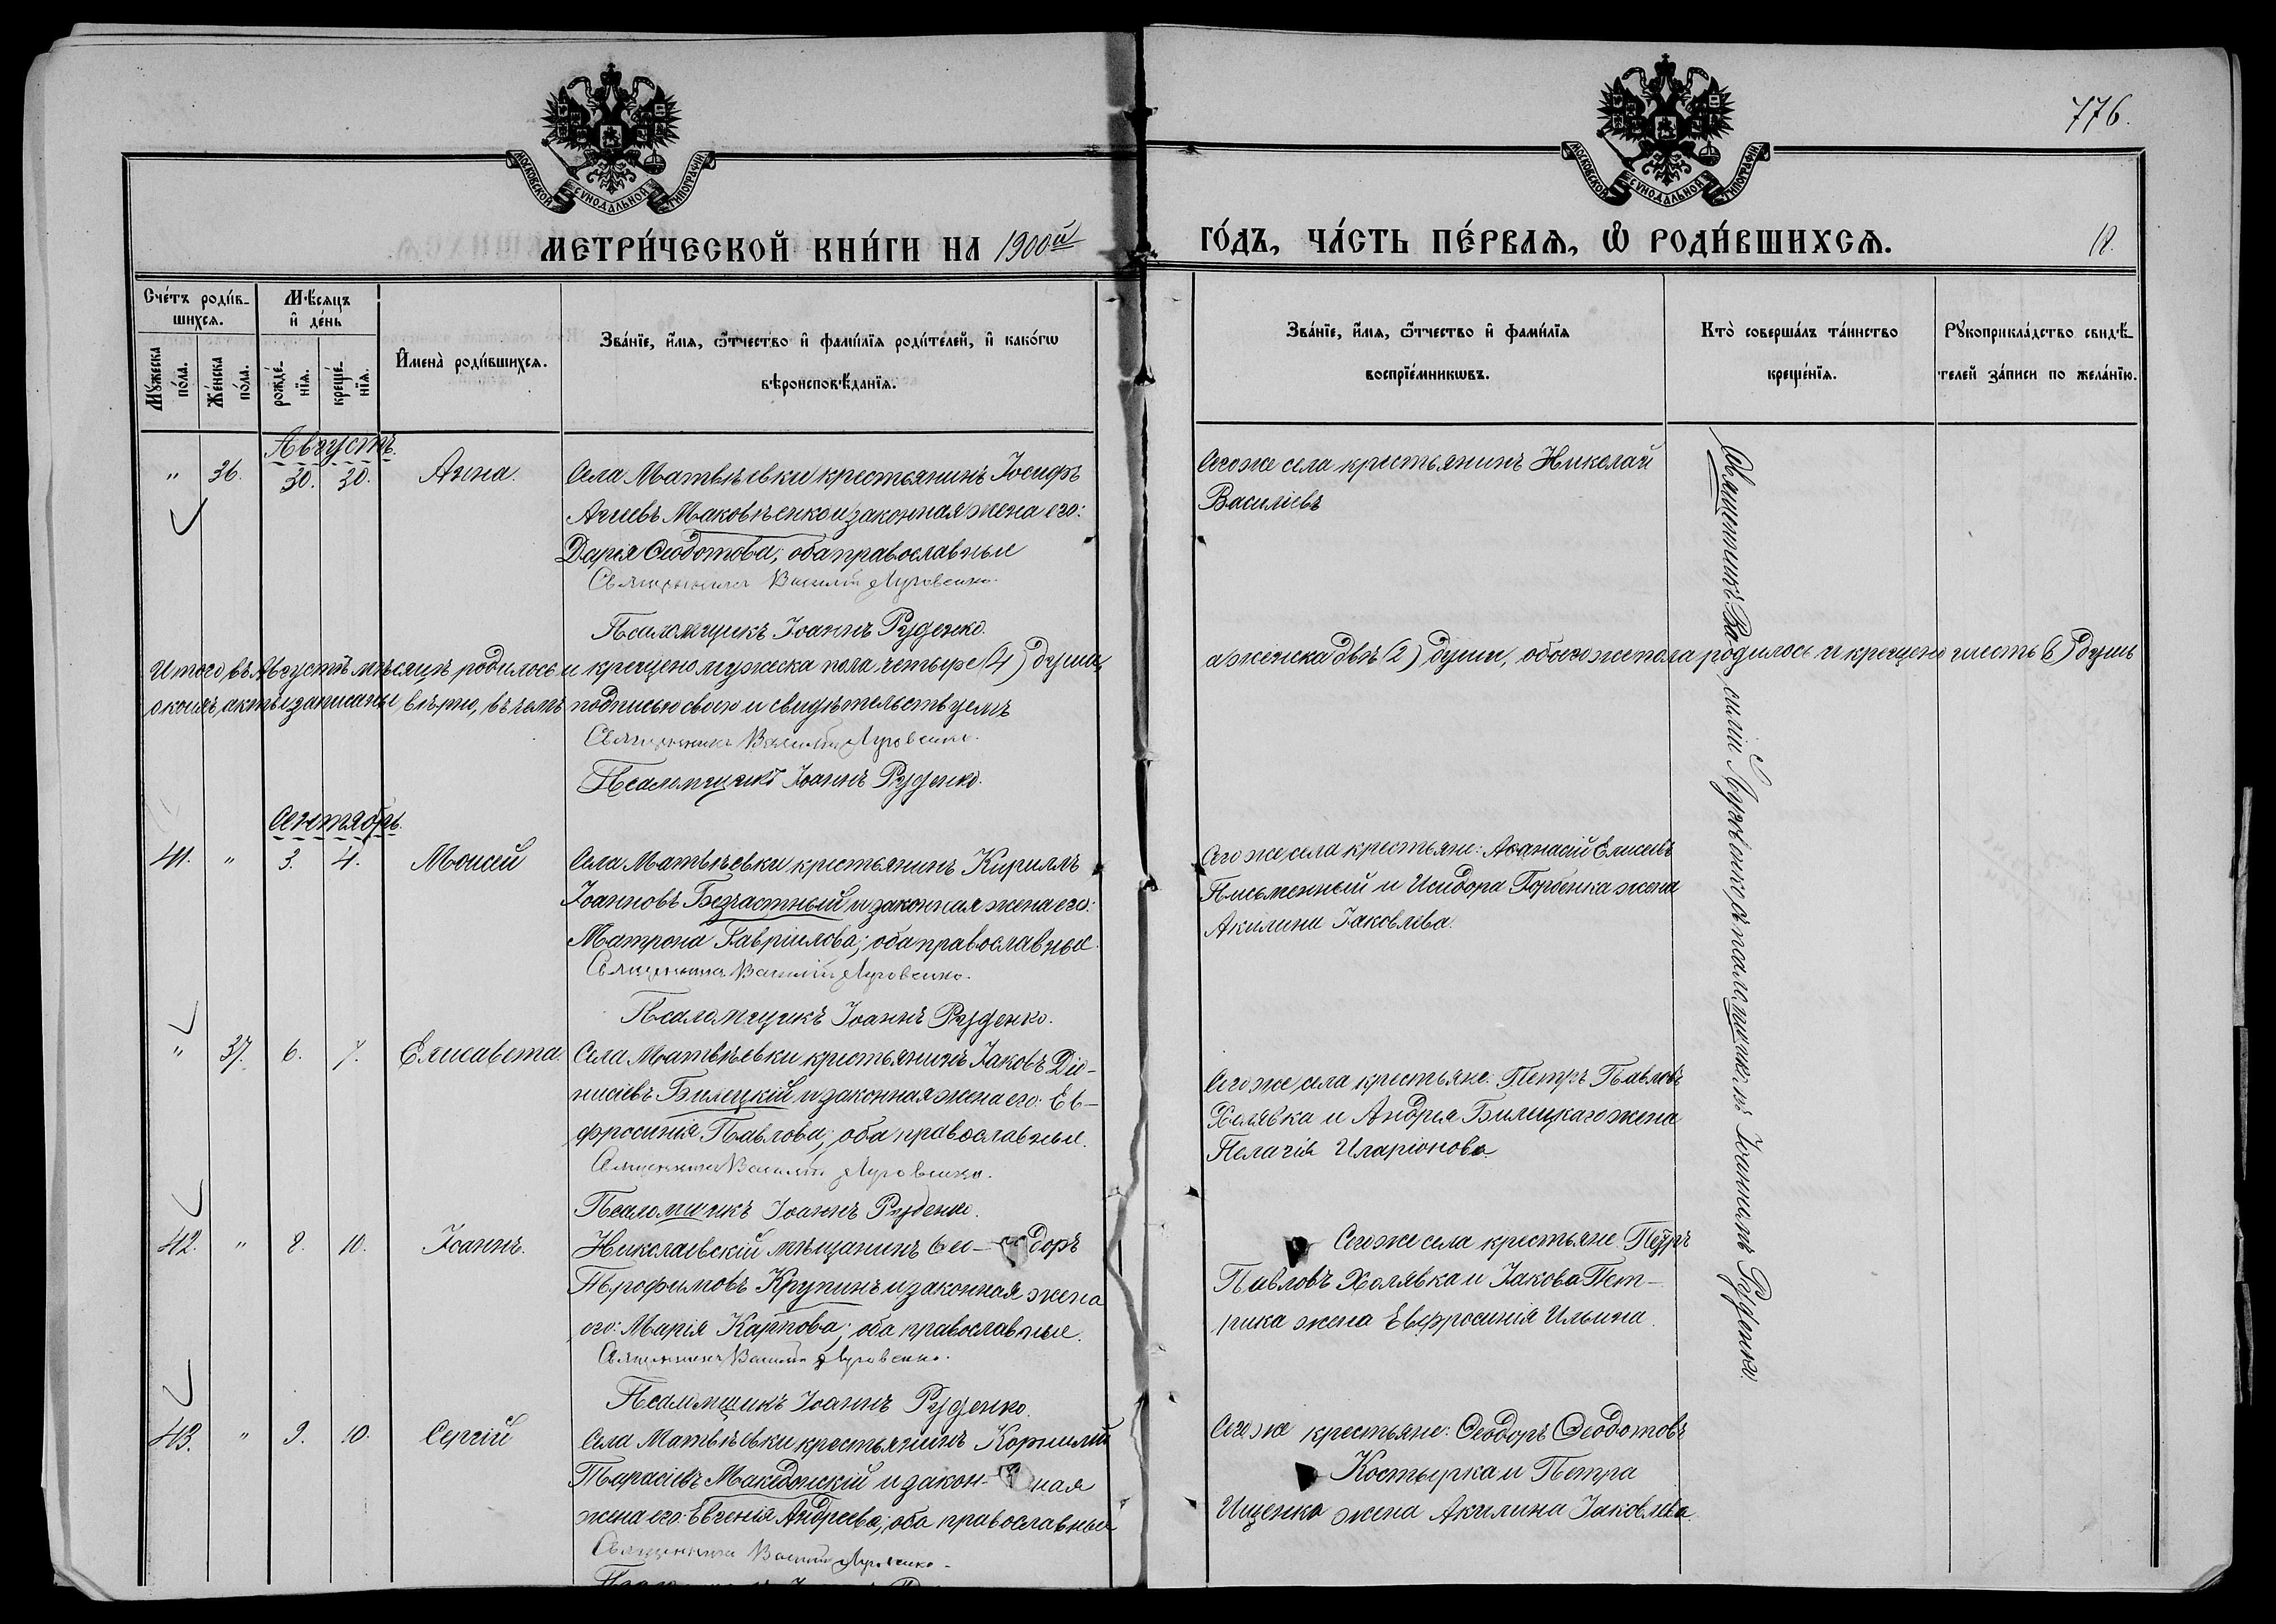 776.
МОСКОВСКОЙ СѴНОДАЛЬНОЙ ТИПОГРАФІИ
МОСКОВСКОЙ СѴНОДАЛЬНОЙ ТИПОГРАФІИ
МЕТРИ́ЧЕСКОЙ КНИ́ГИ НА 1900й
ГО́ДЪ, ЧА́СТЬ ПЕ́РВАѦ, Ѽ РОДИ́ВШИХСѦ.
Сче́тъ роди́в-
шихсѧ.
Мѣ́сѧцъ
и҆ де́нь
Мꙋ́жеска
по́ла.
Же́нска
по́ла.
рожде́-
нїѧ.
креще́-
нїѧ.
И҆мена̀ роди́вшихсѧ.
Зва́нїе, и҆́мѧ, ѻ҆́тчество и҆ фами́лїѧ роди́телей, и҆ како́гѡ
вѣроисповѣ́данїѧ.
Зва́нїе, и҆́мѧ, ѻ҆́тчество и҆ фами́лїѧ
воспрїе́мникѡвъ.
Кто̀ соверша́лъ та́инство
креще́нїѧ.
Рꙋкоприкла́дство свидѣ́-
телей за́писи по жела́нїю.
Августъ.
" 36. 30. 30. Анна.
Села Матвѣевки крестьянинъ Іосифъ
Маковѣенко и законная жена его:
Дарія Ѳеодотова; оба православные
Священникъ Василій Луговенко.
Псаломщикъ Іоаннъ Руденко.
Сего же села крестьянинъ Николай
Василіевъ
Итого въ Августѣ мѣсяцѣ родилось и крещено мужеска пола четыре (4) душа,
а женска двѣ (2) души, обоего же пола родилось и крещено шесть (6) душъ
о коихъ акты записаны вѣрно, въ чемъ подписью своею и свидѣтельствуемъ
Священникъ Василій Луговенко.
Псаломщикъ Іоаннъ Руденко.
Сентябрь.
41. " 3. 4. Моисей
Села Матвѣевки крестьянинъ Кириллъ
Іоанновъ Безчастный и законная жена его:
Матрона Гавріилова; оба православные.
Священникъ Василій Луговенко.
Псаломщикъ Іоаннъ Руденко.
Сего же села крестьяне: Аѳанасій Елисеевъ
Письменный и Исидора Горбенка жена
Акилина Іаковлева.
" 37. 6. 7. Елисавета.
Села Матвѣевки крестьянинъ Іаковъ Діо-
нисіевъ Билецкій и законная жена его: Ев-
фросинія Павлова; оба православные.
Священникъ Василій Луговенко.
Псаломщикъ Іоаннъ Руденко.
Сего же села крестьяне: Петръ Павловъ
Холявка и Андрея Билецкаго жена
Пелагія Иларіонова.
42. " 8. 10. Іоаннъ.
Николаевскій мѣщанинъ Ѳео-доръ
Трофимовъ Крупинъ и законная жена
его: Марія Карпова; оба православные.
Священникъ Василій Луговенко.
Псаломщикъ Іоаннъ Руденко.
Сего же села крестьяне: Петръ
Павловъ Холявка и Іакова Пет-
рика жена Евфросинія Ильина.
43. " 9. 10. Сергій
Села Матвѣевки крестьянинъ Корнилій
Тарасіевъ Македонскій и закон-ная
жена его: Евгенія Андреева; оба православные
Священникъ Василій Луговенко.
Сего же крестьяне: Ѳеодоръ Ѳеодотовъ
Костырка и Петра
Ищенка жена Акилина Іаковлева.
Священникъ Василій Луговенко, съ псаломщикомъ Іоанномъ Руденко.